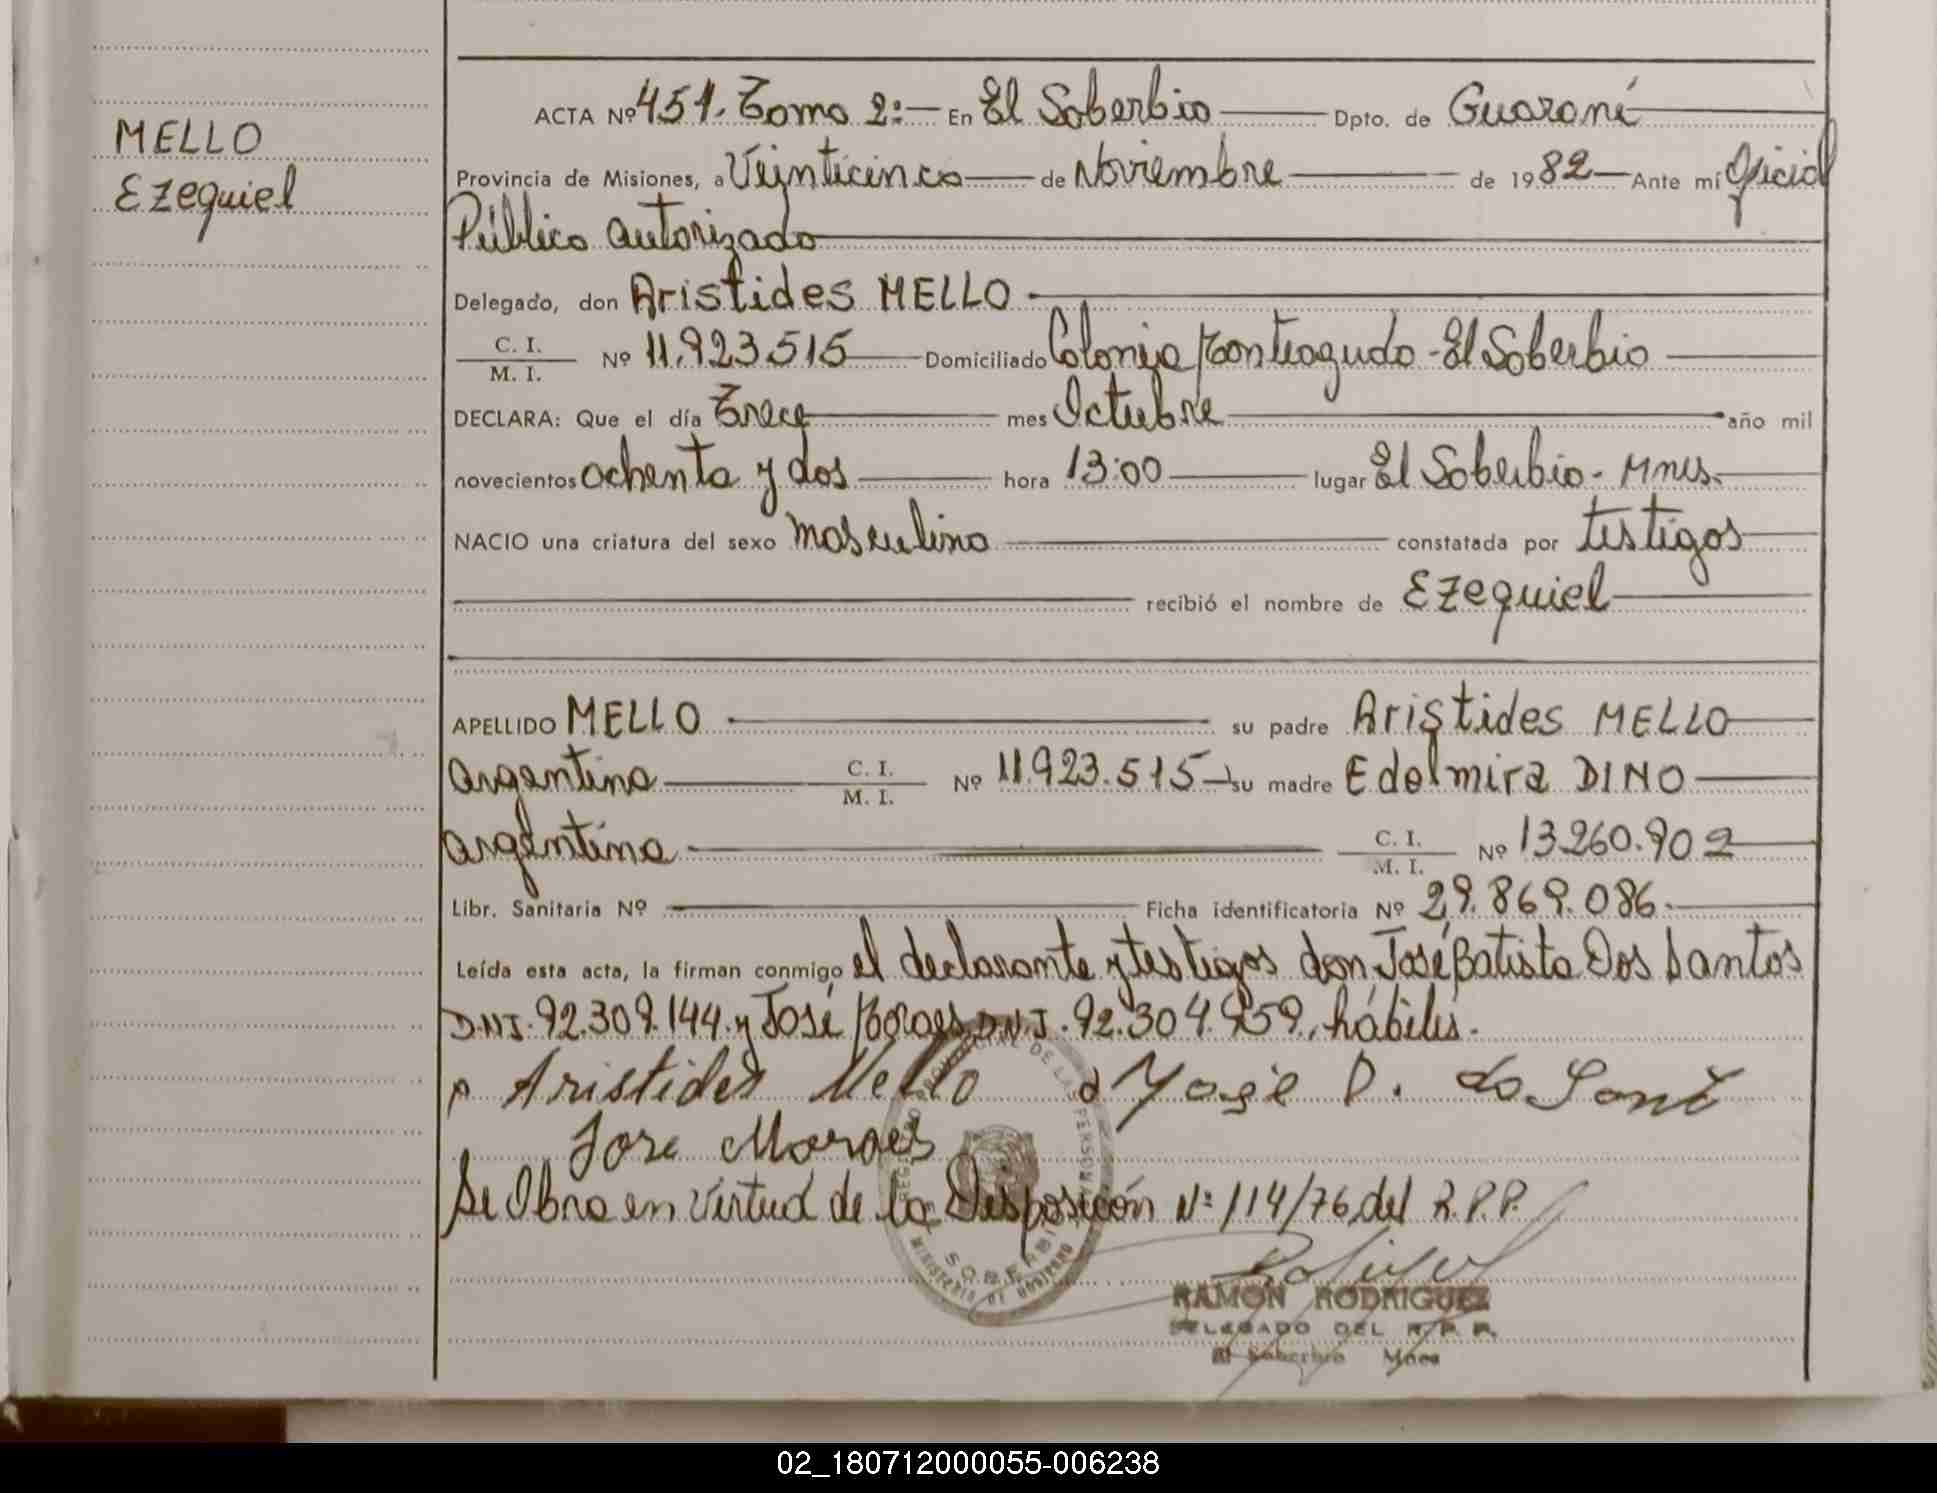 MELLO
Ezequiel
ACTA Nº 451. Tomo 2º — En El Soberbio — Dpto. de Guaraní
Provincia de Misiones, a Veinticinco — de Noviembre — de 1982 — Ante mí Oficial
Público autorizado
Delegado, don Aristides MELLO
C. I. / M. I. Nº 11.923.515 — Domiciliado Colonia Monteagudo - El Soberbio
DECLARA: Que el día Trece — mes Octubre — año mil
novecientos ochenta y dos — hora 13:00 — lugar El Soberbio - Mnes.
NACIO una criatura del sexo masculino — constatada por testigos
recibió el nombre de Ezequiel
APELLIDO MELLO — su padre Aristides MELLO
argentino — C. I. / M. I. Nº 11.923.515 — su madre Edelmira DINO
argentina — C. I. / M. I. Nº 13.260.902
Libr. Sanitaria Nº — Ficha identificatoria Nº 29.869.086.
Leída esta acta, la firman conmigo el declarante y testigos don José Batista Dos Santos
D.N.I. 92.309.144. y José Moraes D.N.I. 92.304.959, hábiles.
Aristides Mello José D. do Sant
Jose Moraes
Se Obra en Virtud de la Disposición Nº 114/76 del R.P.P.
DE LAS PERSONAS
SOBERBIO
MINISTERIO DE GOBIERNO
RAMON RODRIGUEZ
DELEGADO DEL R. P. P.
El Soberbio Mnes
02_180712000055-006238